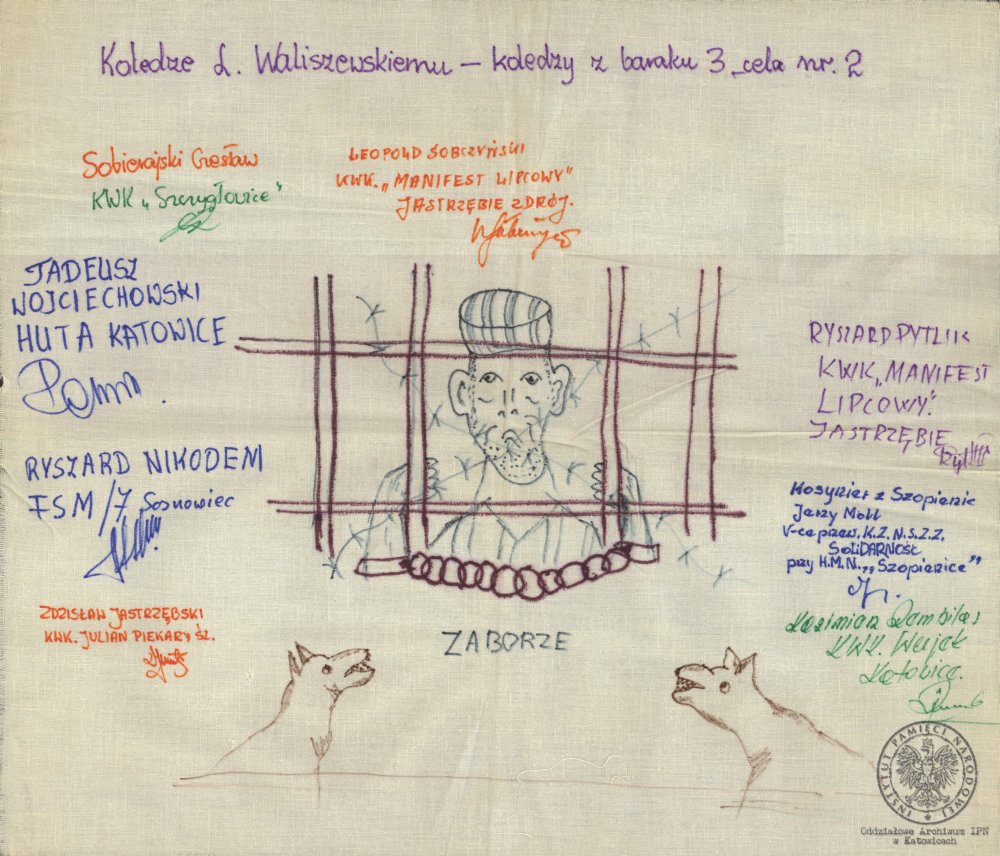 Koledze L. Waliszewskiemu – koledzy z baraku 3 cela nr. 2
Sobierajski Czesław
KWK „Szczygłowice"
LEOPOLD SOBCZYŃSKI
KWK. „MANIFEST LIPCOWY"
JASTRZĘBIE ZDRÓJ.
TADEUSZ
WOJCIECHOWSKI
HUTA KATOWICE
RYSZARD NIKODEM
FSM/7 Sosnowiec
ZDZISŁAW JASTRZĘBSKI
KWK. JULIAN PIEKARY ŚL.
RYSZARD PYTLIK
KWK „MANIFEST
LIPCOWY."
JASTRZĘBIE
Kosynier z Szopienic
Jerzy Moll
V-ce przew. K.Z. N.S.Z.Z.
SOLIDARNOŚĆ
przy H.M.N. „Szopienice"
Kazimierz
KWK. Wujek
Katowice.
ZABORZE
INSTYTUT PAMIĘCI NARODOWEJ
Oddziałowe Archiwum IPN
w Katowicach